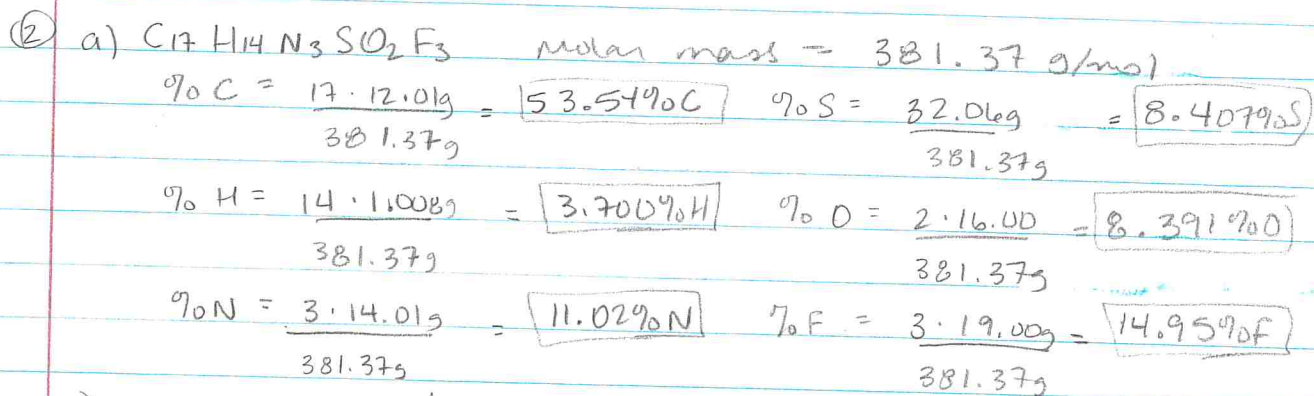 ② a) C17 H14 N3 SO2 F3 Molar mass = 381.37 g/mol
% C = 17 · 12.01g / 381.37g = 53.54% C % S = 32.06g / 381.37g = 8.407% S
% H = 14 · 1.008g / 381.37g = 3.700% H % O = 2 · 16.00 / 381.37g = 8.391% O
% N = 3 · 14.01g / 381.37g = 11.02% N % F = 3 · 19.00g / 381.37g = 14.95% F